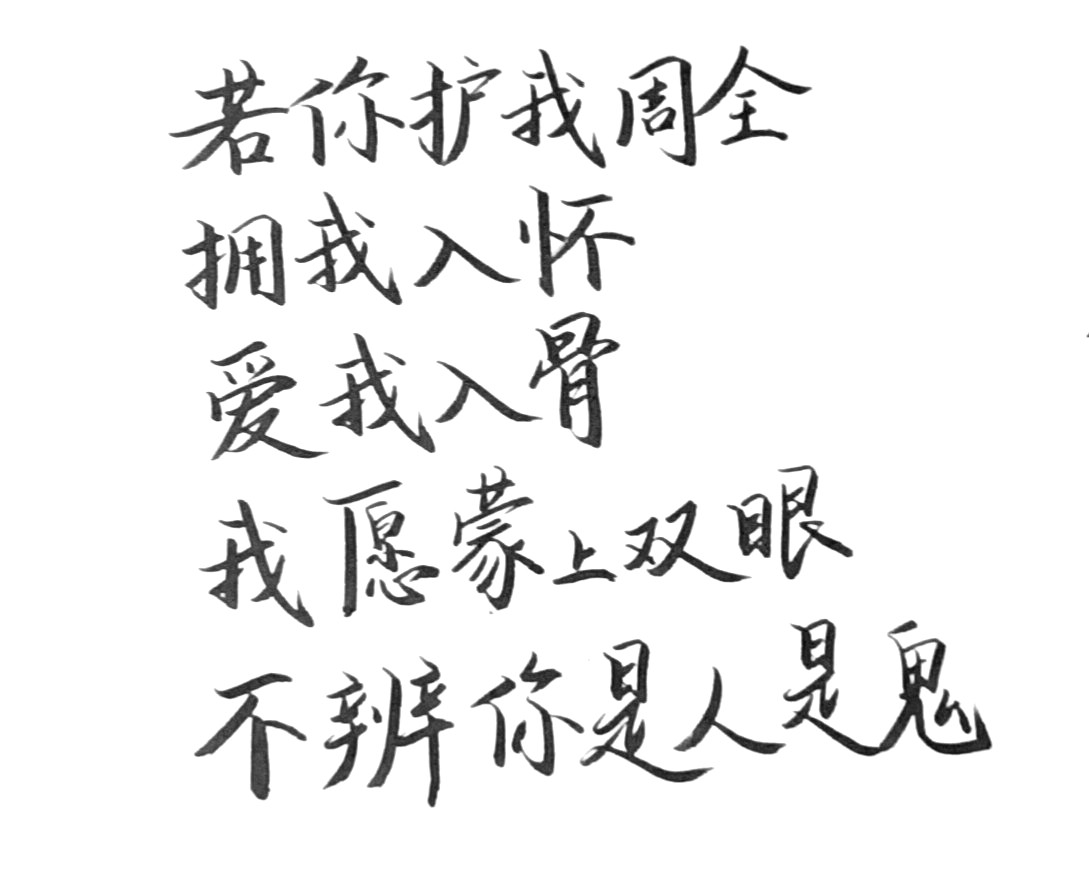 若你护我周全
拥我入怀
爱我入骨
我愿蒙上双眼
不辨你是人是鬼